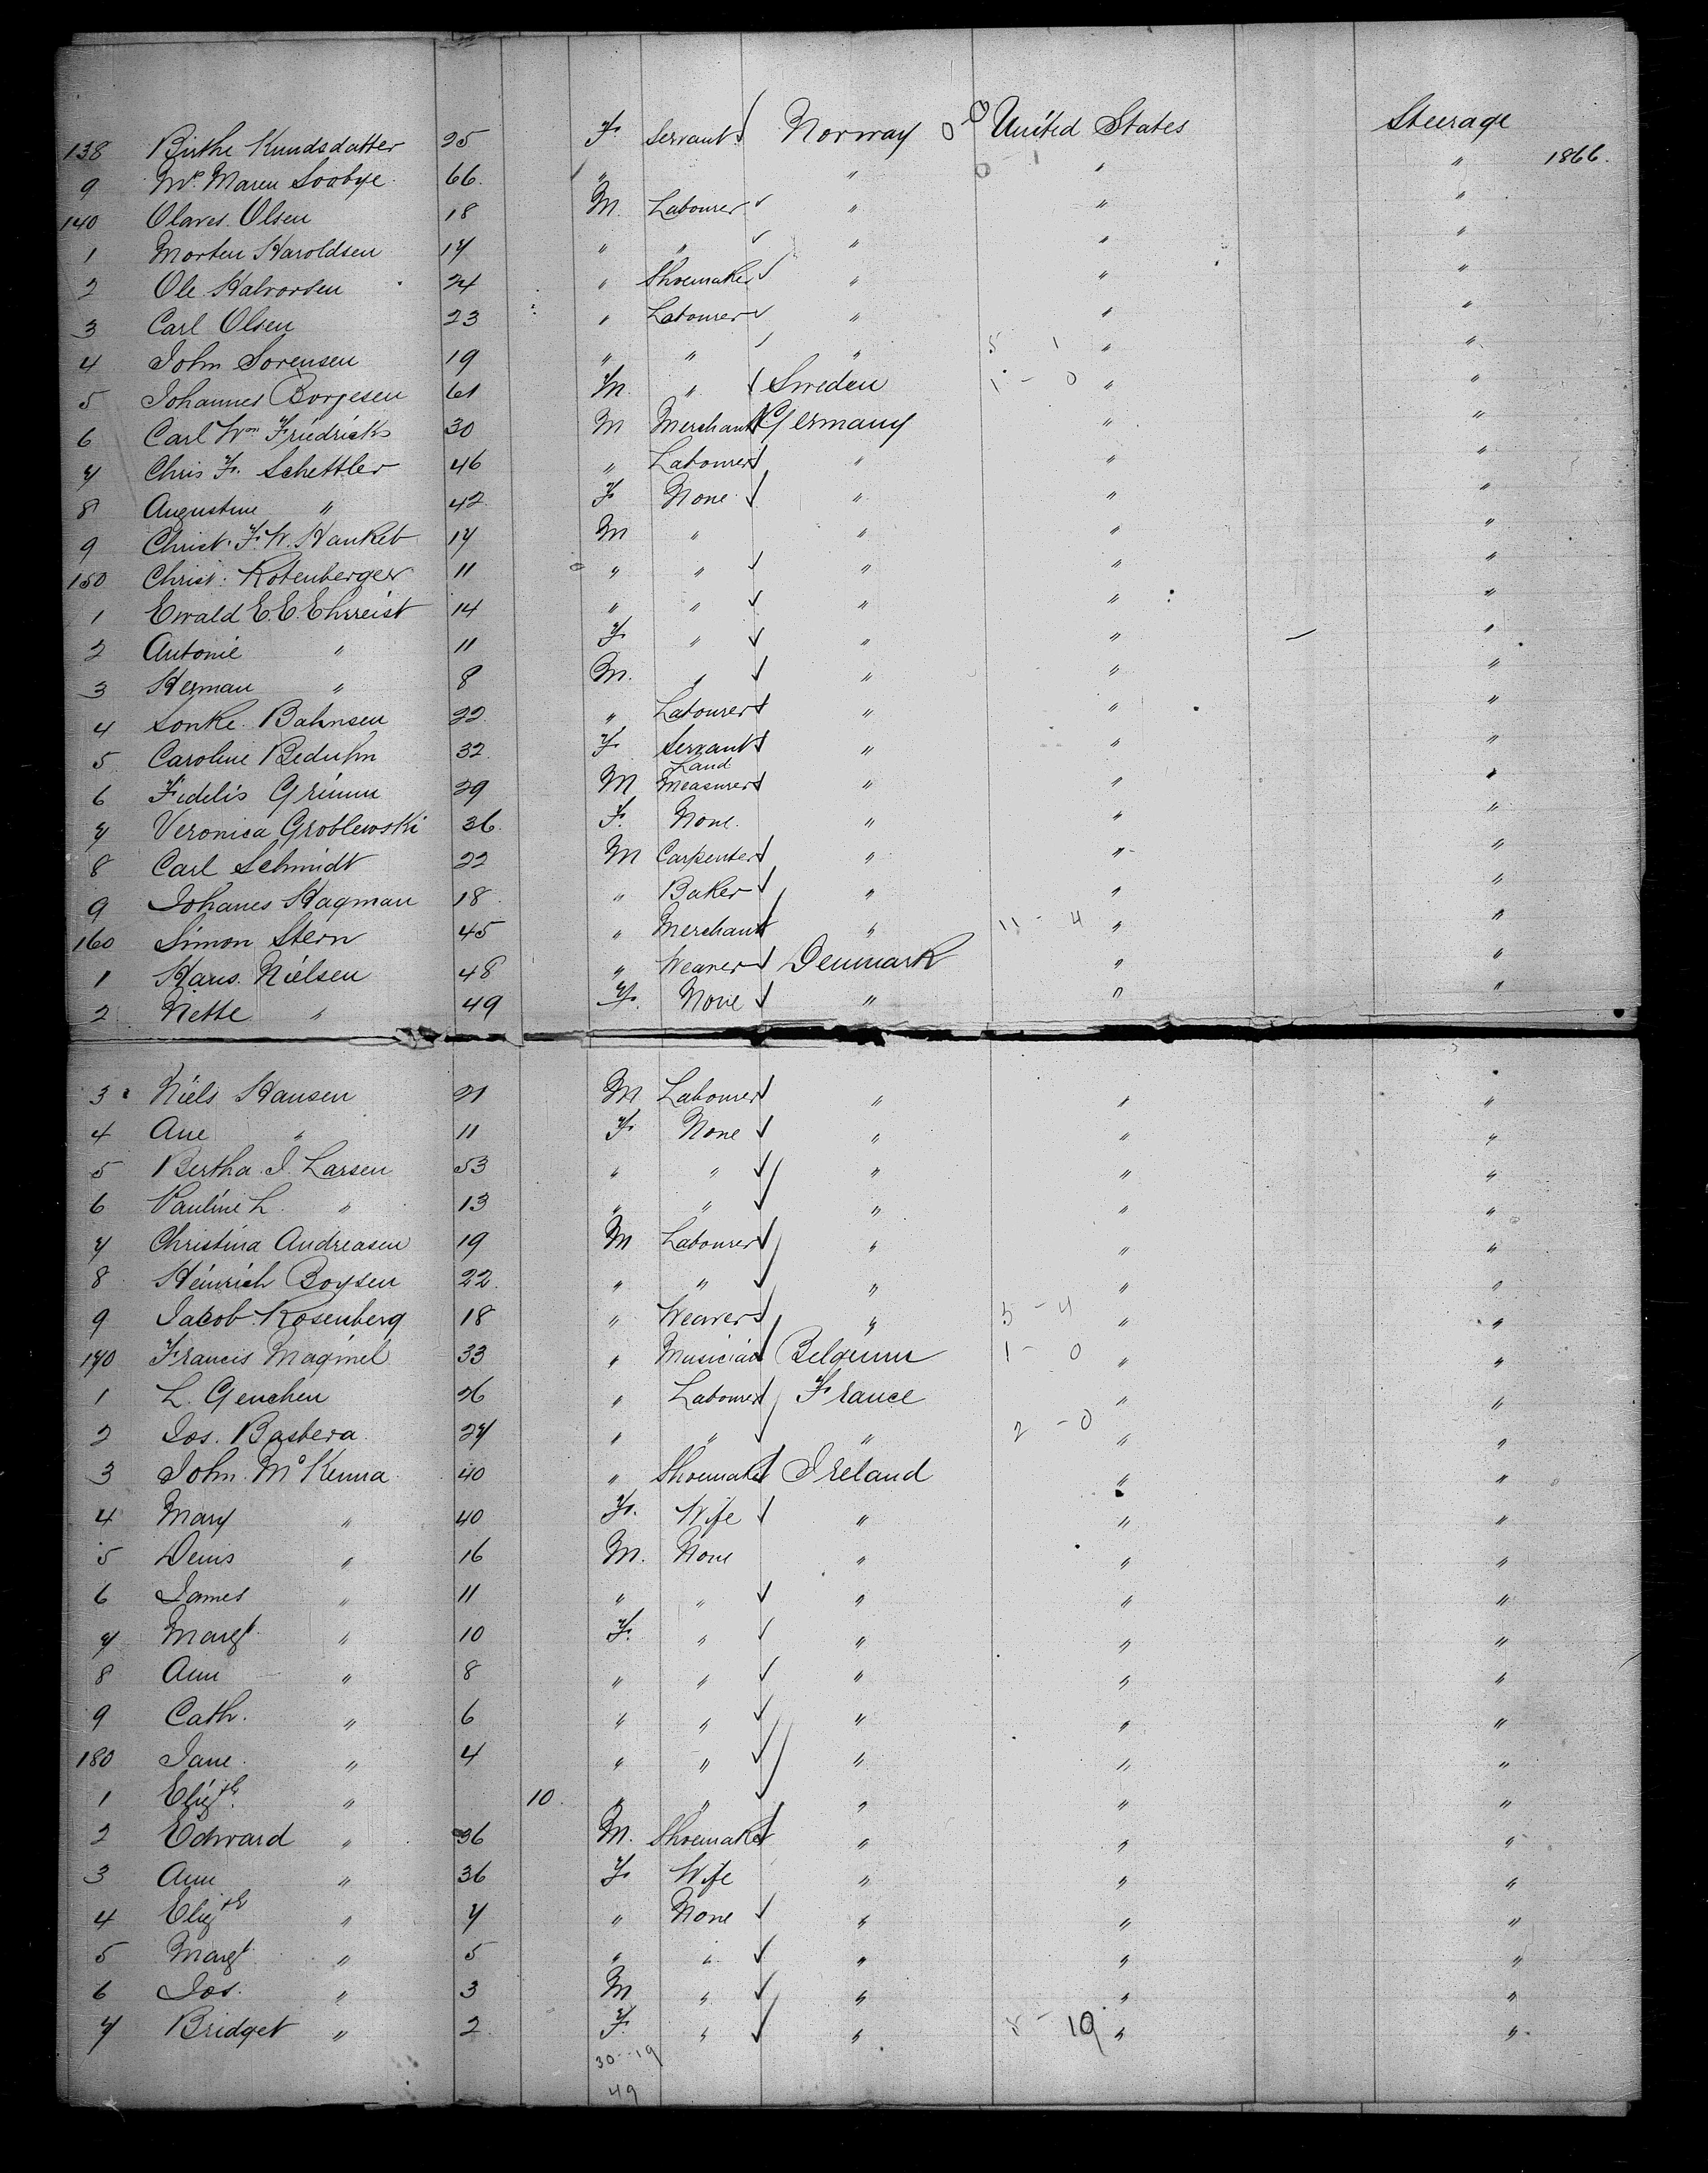 138 Birthe Knudsdatter 25 F. Servant Norway United States Steerage
1866.
9 Mrs. Maren Soobye 66. " " " "
140 Olaves Olsen 18 M. Labourer " " "
1 Morten Haroldsen 17 " " " " "
2 Ole Halvorsen 24 " Shoemaker " " "
3 Carl Olsen 23 " Labourer " " "
4 John Sorensen 19 " " " 5 1 " "
5 Johannes Borjesen 61 M. " Sweden 1 - 0 " "
6 Carl Wm Friedricks 30 M Merchant Germany " "
7 Chris F. Schettler 46 " Labourer " " "
8 Augustine " 42 F None " " "
9 Christ. F. W. Hanket 17 M " " " "
150 Christ. Rotenberger 11 " " " " "
1 Ewald E. E. Ehrreist 14 " " " " "
2 Antonie " 11 F. " " " "
3 Herman " 8 M. " " " "
4 Sonke Bahnsen 22 " Labourer " " "
5 Caroline Beduhn 32 F Servant " " "
6 Fidelis Grimm 29 M Land Measurer " " "
7 Veronica Groblewski 36. F. None. " " "
8 Carl Schmidt 22 M Carpenter " " "
9 Johanes Hagman 18 " Baker " " "
160 Simon Stern 45 " Merchant " 11 - 4 " "
1 Hans Nielsen 48 " Weaver Denmark " "
2 Nette " 49 F. None " " "
3 Niels Hansen 21 M Labourer " " "
4 Ane " 11 F None " " "
5 Bertha J. Larsen 53 " " " " "
6 Pauline L. " 13 " " " " "
7 Christina Andreasen 19 M Labourer " " "
8 Heinrich Boysen 22. " " " " "
9 Jacob Rosenberg 18 " Weaver " 5 - 4 " "
170 Francis Maginel 33 " Musician Belgium 1 - 0 " "
1 L. Genchen 26 " Labourer France " "
2 Jos. Bastera 27 " " " 2 - 0 " "
3 John McKenna 40 " Shoemaker Ireland " "
4 Mary " 40 F. Wife " " "
5 Denis " 16 M. None " " "
6 James " 11 " " " " "
7 Margt. " 10 F. " " " "
8 Ann " 8 " " " " "
9 Cath. " 6 " " " " "
180 Jane " 4 " " " " "
1 Elizth. " 10. " " " " "
2 Edward " 36 M. Shoemaker " " "
3 Ann " 36 F Wife " " "
4 Elizth " 7 " None " " "
5 Margt " 5 " " " " "
6 Jos. " 3 M " " " "
7 Bridget " 2 F. " " 8 - 19 " "
30 - 19
49